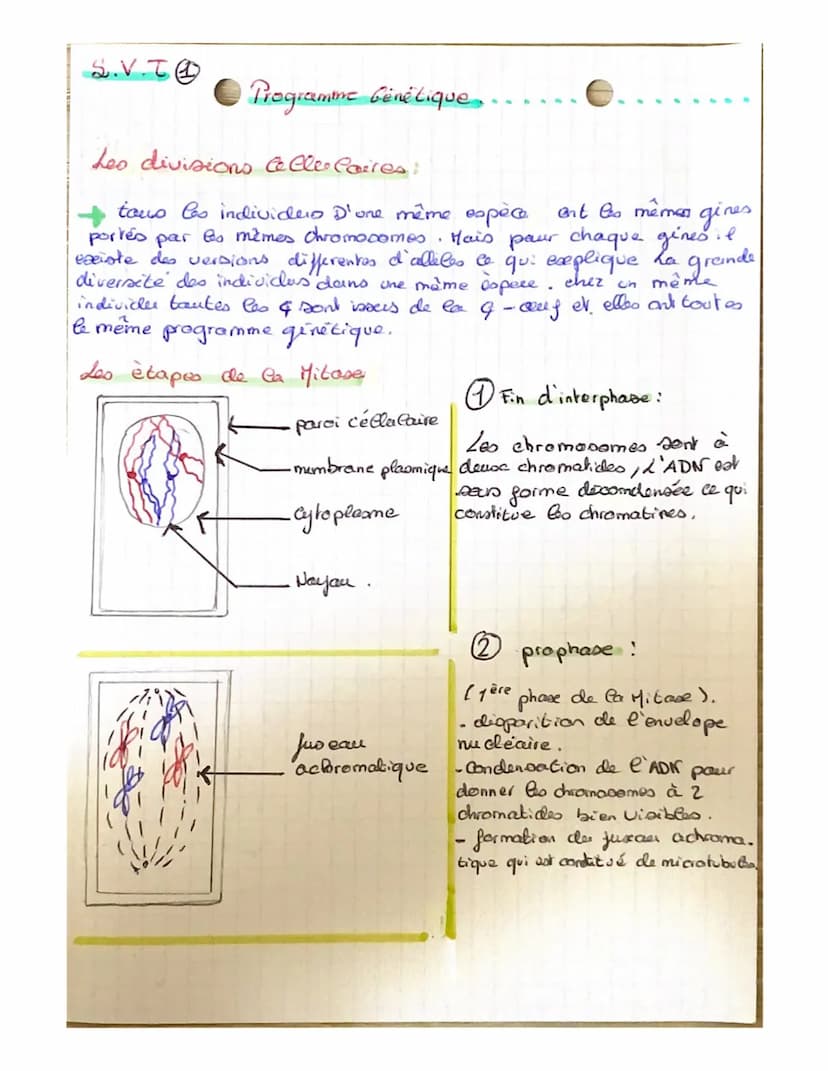 S.V.T ①
Programme Génétique.
Les divisions Cellulaires :
→ tous les individus D'une même espèce ont les mêmes gènes
portés par les mêmes chromosomes. Mais pour chaque gènes il
existe des versions differentes d'allèles ce qui explique la grande
diversité des individus dans une même espece. chez un même
individu toutes les ç sont issus de la ç-œuf et elles ont toutes
le même programme génétique.
Les ètapes de la Mitose
① Fin d'interphase :
Les chromosomes sont à
deux chromatides, L'ADN est
sous forme décondensée ce qui
constitue les chromatines.
paroi céllulaire
membrane plasmique
Cytoplasme
Noyau.
② prophase :
(1ère phase de la Mitose).
- disparition de l'envelope
nucléaire.
- Condensation de l'ADN pour
donner les chromosomes à 2
chromatides bien visibles.
- formation du fuseau achroma-
tique qui est constitué de microtubules
fuseau
achromatique